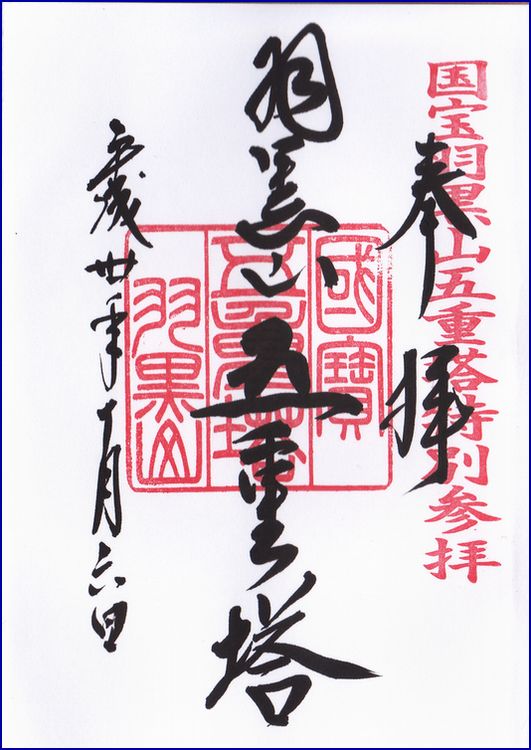 国宝羽黒山五重塔特別参拝
奉拝
國寳
五重塔
羽黒山
羽黒山五重塔
平成卅年十月六日